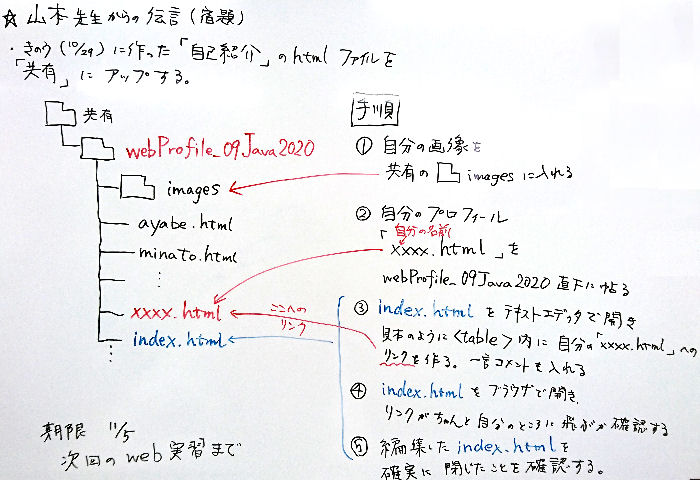 ☆ 山本先生からの伝言(宿題)
・きのう(10/29)に作った「自己紹介」のhtmlファイルを
「共有」にアップする。
共有
webProfile_09Java2020
images
ayabe.html
minato.html
⋮
xxxx.html
index.html
⋮
ここへの
リンク
期限 11/5
次回のweb実習まで
手順
① 自分の画像を
共有の images に入れる
② 自分のプロフィール
自分の名前
「xxxx.html」を
webProfile_09Java2020 直下に貼る
③ index.htmlをテキストエディタで開き
見本のように<table>内に自分の「xxxx.html」への
リンクを作る。一言コメントも入れる
④ index.htmlをブラウザで開き、
リンクがちゃんと自分のところに飛ぶか確認する
⑤ 編集したindex.htmlを
確実に閉じたことを確認する。